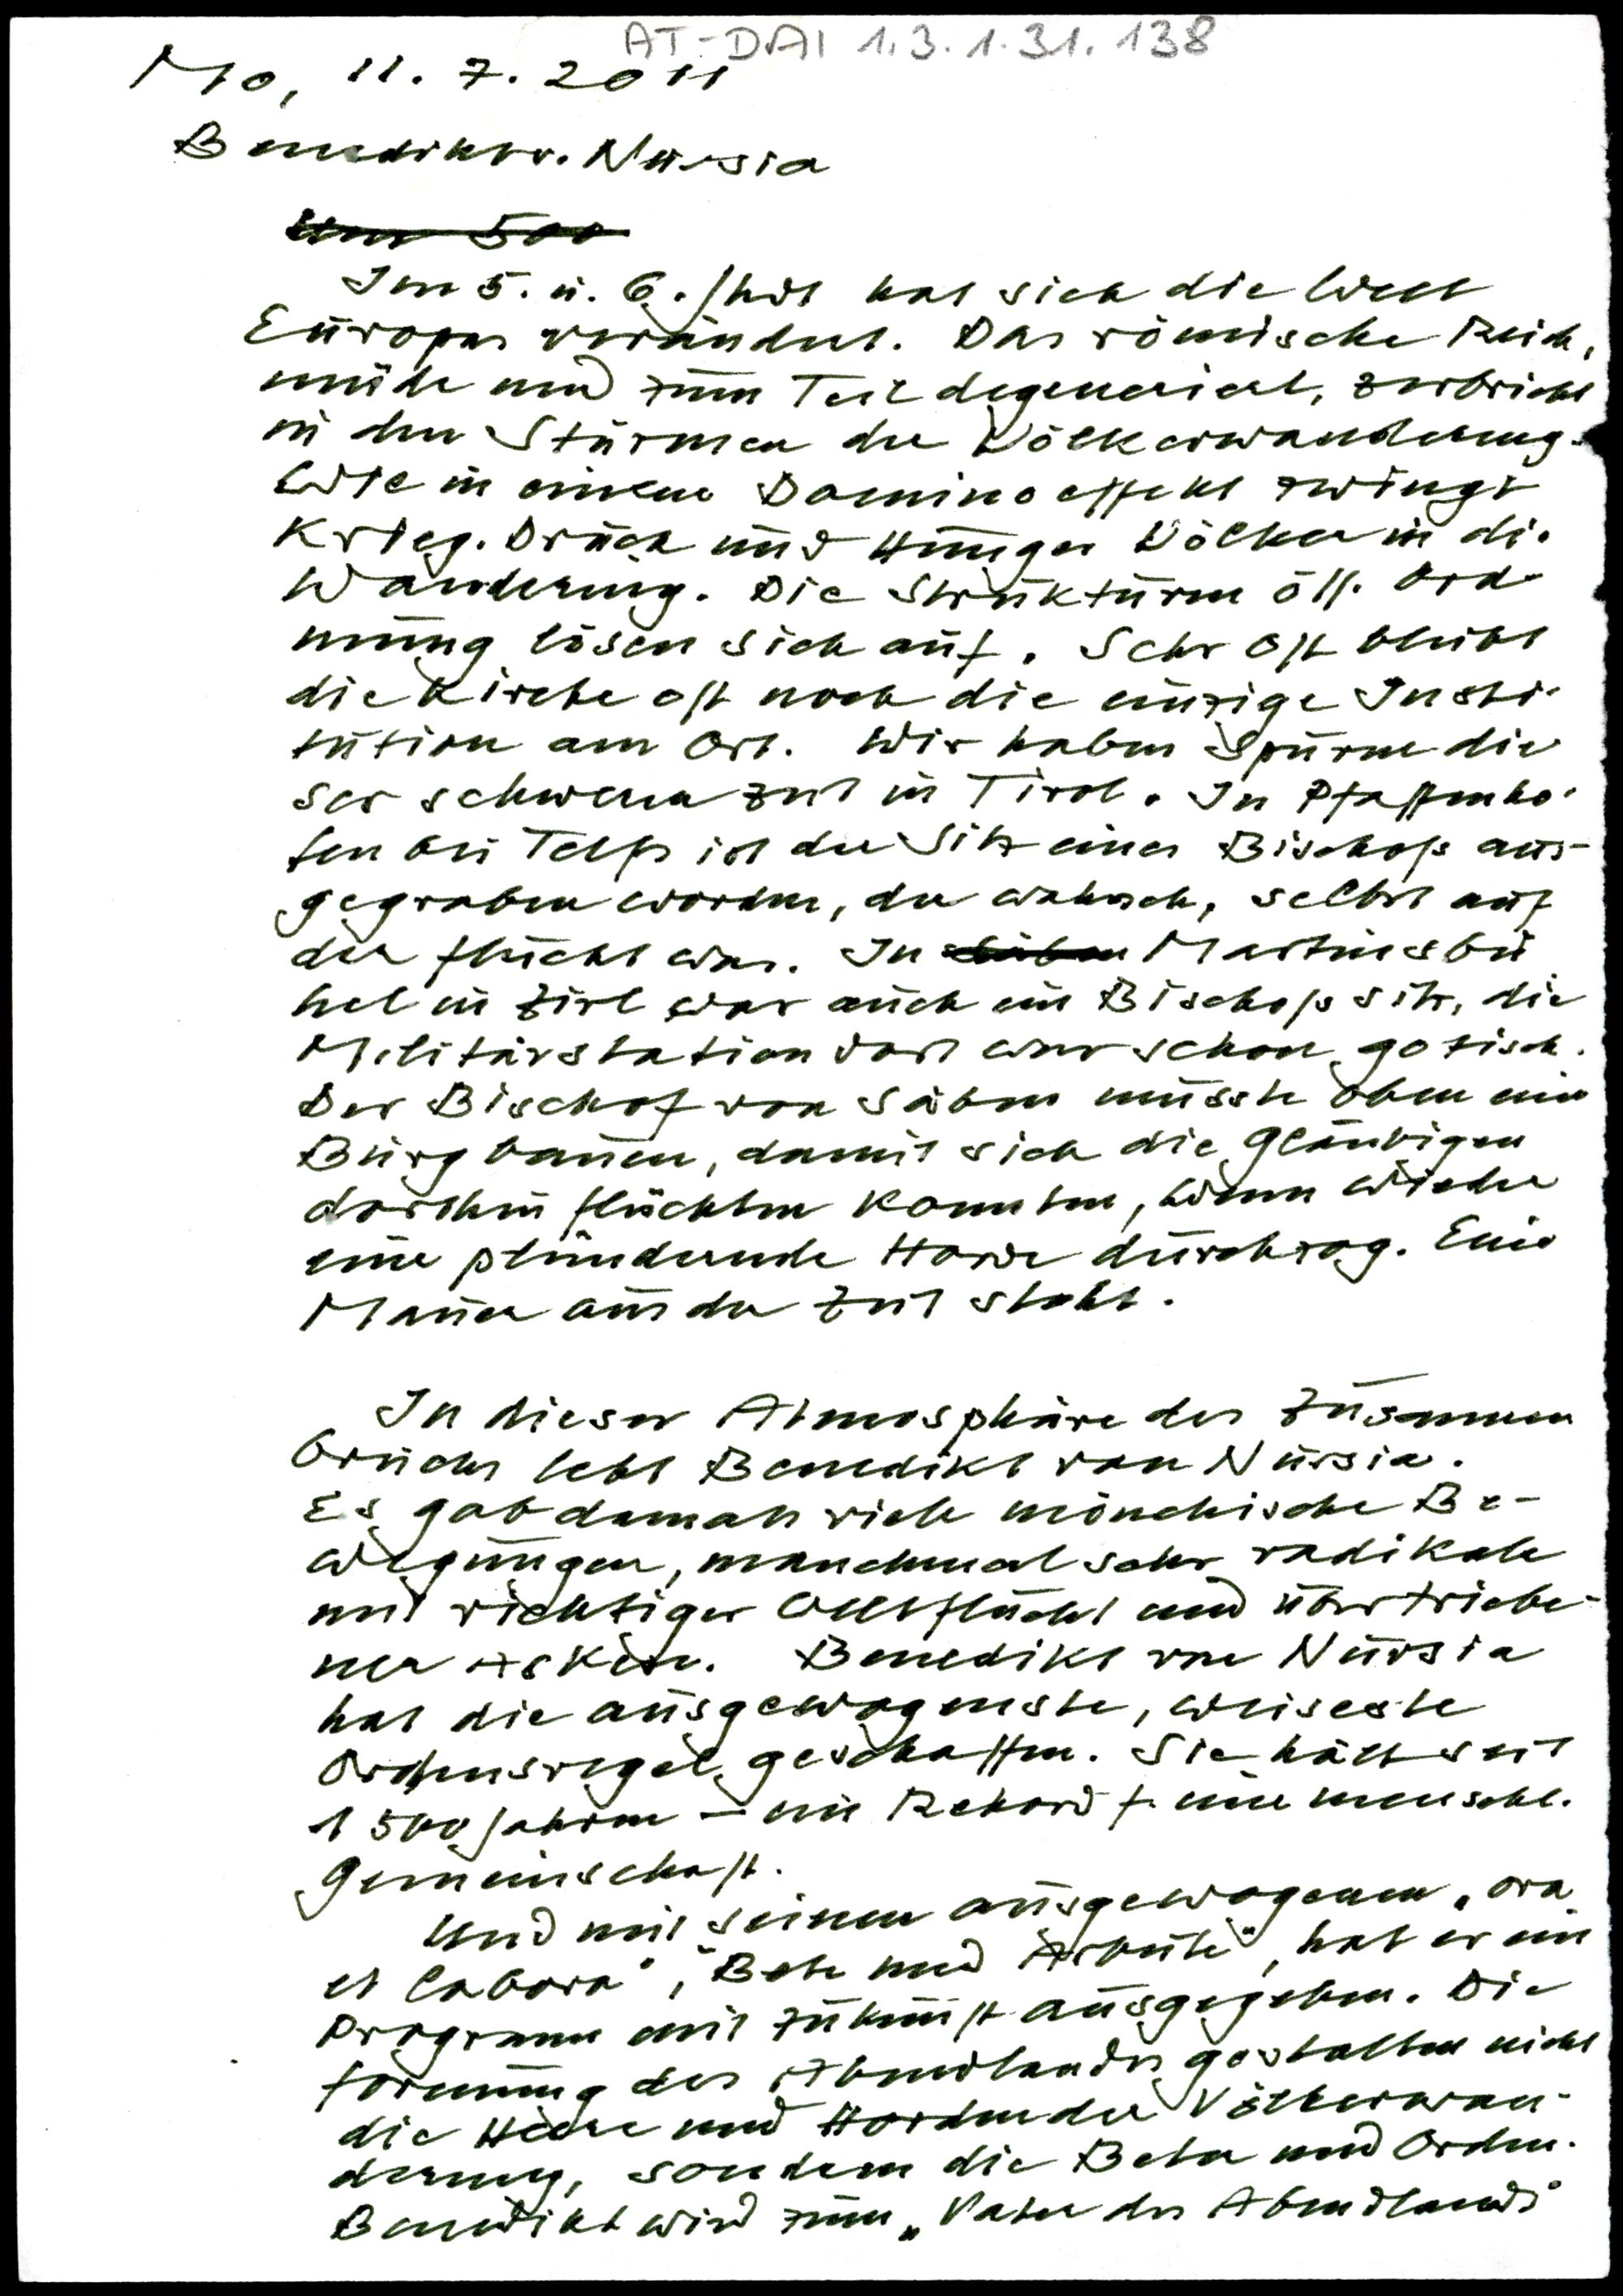 AT-DAI 1.3.1.31.138
Mo, 11.7.2011
Benedikt v. Nursia
Um 500
Im 5. u. 6. Jhdt hat sich die Welt
Europas verändert. Das römische Reich,
müde und zum Teil degeneriert, zerbricht
in den Stürmen der Völkerwanderung.
Wie in einem Dominoeffekt zwingt
Krieg. Druck und Hunger Völker in die
Wanderung. Die Strukturen öff. Ord
nung lösen sich auf. Sehr oft bleibt
die Kirche oft noch die einzige Insti-
tution am Ort. Wir haben Spuren die
ser schweren Zeit in Tirol. In Pfaffenho-
fen bei Telfs ist der Sitz eines Bischofs aus-
gegraben worden, der wahrsch. selbst auf
der Flucht war. In Säben Martinsbü
hel in Zirl war auch ein Bischofssitz, die
Militärstation dort war schon gotisch.
Der Bischof von Säben musste oben eine
Burg bauen, damit sich die Gläubigen
dorthin flüchten konnten, wenn wieder
eine plündernde Horde durchzog. Eine
Mauer aus der Zeit steht.
In dieser Atmosphäre des Zusammen
bruchs lebt Benedikt von Nursia.
Es gab damals viele mönchische Be-
wegungen, manchmal sehr radikale
mit richtiger Weltflucht und übertriebe-
ner Askese. Benedikt von Nursia
hat die ausgewogenste, weiseste
Ordensregel geschaffen. Sie hält seit
1500 Jahren – ein Rekord f. eine menschl.
Gemeinschaft.
Und mit seinem ausgewogenen „ora
et labora", „Bete und Arbeite", hat er ein
Programm mit Zukunft ausgegeben. Die
Formung des Abendlandes gestalten nicht
die Heere und Horden der Völkerwan-
derung, sondern die Beter und Orden.
Benedikt wird zum „Vater des Abendlands"